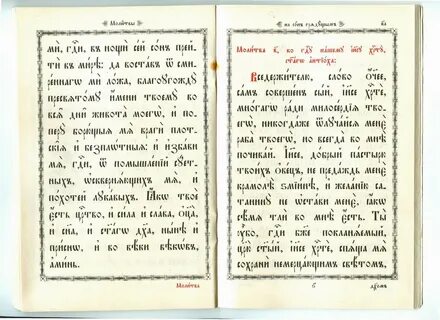 Моли́твы
ми́, гдⷭ҇и, въ нощѝ се́й со́нъ прей-
тѝ въ ми́рѣ: да воста́въ ѿ сми-
ре́ннагѡ мѝ ло́жа, благоугождꙋ̀
прест҃о́мꙋ и҆́мени твоемꙋ̀ во
всѧ̑ дни̑ живота̀ моегѡ̀, и҆ по-
перꙋ̀ борю́щыѧ мѧ̀ врагѝ плот-
скі̑ѧ и҆ безпло̑тныѧ: и҆ и҆зба́ви
мѧ̀, гдⷭ҇и, ѿ помышле́ній сꙋ́ет-
ныхъ, ѡ҆сквернѧ́ющихъ мѧ̀, и҆
по́хотей лꙋка́выхъ. Ꙗ҆́кѡ твоѐ
є҆́сть црⷭ҇тво, и҆ си́ла и҆ сла́ва, ѻ҆ц҃а̀,
и҆ сн҃а, и҆ ст҃а́гѡ дх҃а, нн҃ѣ и҆
при́снѡ, и҆ во вѣ́ки вѣкѡ́въ,
а҆ми́нь.
Моли́тва
на со́нъ грѧдꙋ́щымъ.
Моли́тва в҃, ко гдⷭ҇ꙋ на́шемꙋ і҆и҃сꙋ хрⷭ҇тꙋ̀,
ст҃а́гѡ а҆нтїо́ха:
Вседержи́телю, сло́во ѻ҆́ч҃ее,
са́мъ соверше́нъ сы́й, і҆и҃се хрⷭ҇тѐ,
мно́гагѡ ра́ди милосе́рдїѧ тво-
егѡ̀, никогда́же ѿлꙋча́йсѧ менѐ
раба̀ твоегѡ̀, но всегда̀ во мнѣ̀
почива́й. І҆и҃се, до́брый па́стырю
твои́хъ ѻ҆ве́цъ, не преда́ждь менѐ
крамолѣ̀ ѕмїи́нѣ, и҆ жела́нїю са-
танинꙋ̀ не ѡ҆ста́ви менѐ, ꙗ҆́кѡ
сѣ́мѧ тлѝ во мнѣ̀ є҆́сть. Ты̀
ᲂу҆̀бо, гдⷭ҇и бж҃е покланѧ́емый,
цр҃ю̀ ст҃ы́й, і҆и҃се хрⷭ҇тѐ, спѧ́ща мѧ̀
сохранѝ немерца́ющимъ свѣ́томъ,
дх҃омъ